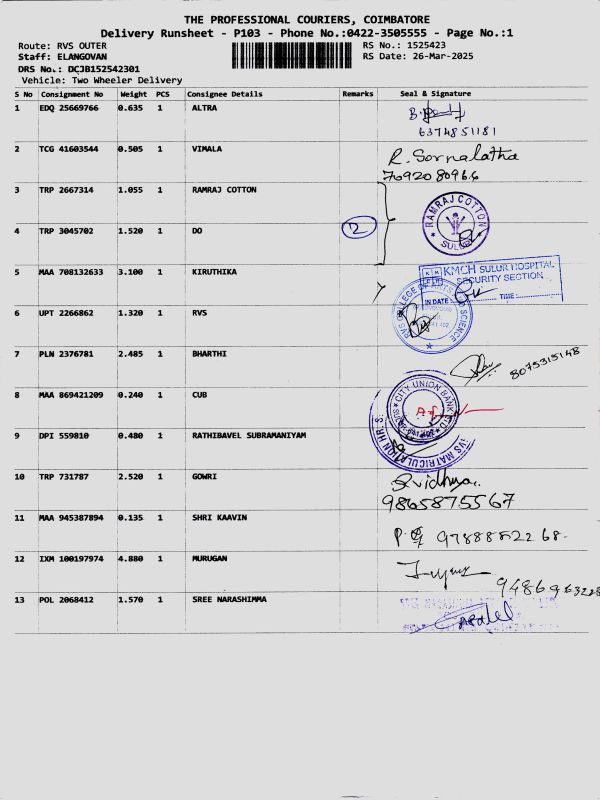 THE PROFESSIONAL COURIERS, COIMBATORE
Delivery Runsheet - P103 - Phone No.:0422-3505555 - Page No.:1
Route: RVS OUTER RS No.: 1525423
Staff: ELANGOVAN RS Date: 26-Mar-2025
DRS No.: DCJB152542301
Vehicle: Two Wheeler Delivery
S No Consignment No Weight PCS Consignee Details Remarks Seal & Signature
1 EDQ 25669766 0.635 1 ALTRA
6374851181
2 TCG 41603544 0.505 1 VIMALA R. Sornalatha
769208096.6
3 TRP 2667314 1.055 1 RAMRAJ COTTON
RAMRAJ COTTON
SULUR
4 TRP 3045702 1.520 1 DO
5 MAA 708132633 3.100 1 KIRUTHIKA
KMCH SULUR HOSPITAL
SECURITY SECTION
IN DATE TIME
6 UPT 2266862 1.320 1 RVS
RVS COLLEGE OF ARTS SCIENCE
7 PLN 2376781 2.485 1 BHARTHI
8075315148
8 MAA 869421209 0.240 1 CUB
CITY UNION BANK LTD
9 DPI 559810 0.480 1 RATHIBAVEL SUBRAMANIYAM
MATRICULATION HR. S.
10 TRP 731787 2.520 1 GOWRI
9865875567
11 MAA 945387894 0.135 1 SHRI KAAVIN
9788852268
12 IXM 100197974 4.880 1 MURUGAN
13 POL 2068412 1.570 1 SREE NARASHIMMA